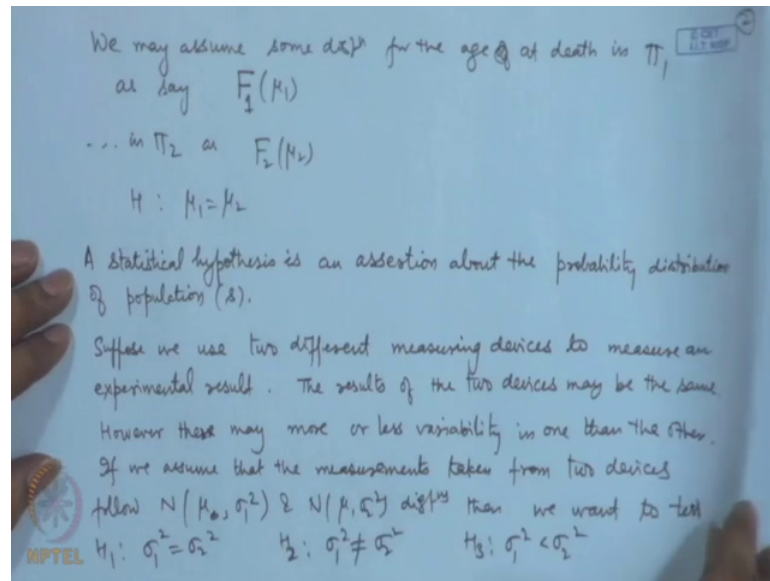 2
© CET
I.I.T. KGP
We may assume some distⁿ for the age at death in π₁
as say F₁(μ₁)
... in π₂ as F₂(μ₂)
H : μ₁ = μ₂
A statistical hypothesis is an assertion about the probability distribution
of population (s).
Suppose we use two different measuring devices to measure an
experimental result. The results of the two devices may be the same.
However there may more or less variability in one than the other.
If we assume that the measurements taken from two devices
follow N(μ, σ₁²) & N(μ, σ₂²) distⁿˢ then we want to test
H₁ : σ₁² = σ₂² H₂ : σ₁² ≠ σ₂² H₃ : σ₁² < σ₂²
NPTEL